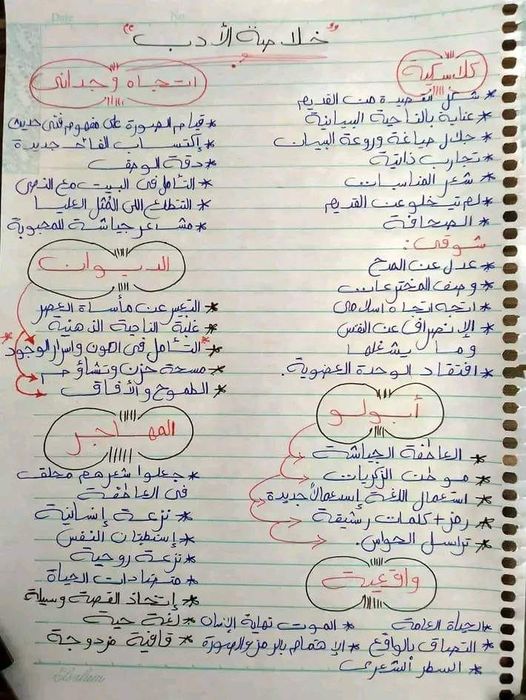 "خلاصة الأدب"
كلاسكية
* شكل القصيدة من القديم
* عناية بالناحية البيانية
* جلال صياغة وروعة البيان
* تجارب ذاتية
* شعر المناسبات
* لم تيخلو عن القديم
* الصحافة
شوقى :
* عدل عن المدح
* وصف المخترعات
* اتجه اتجاه اسلامى
* الإنصراف عن النفس
وما يشغلها
* افتقاد الوحدة العضوية.
أبولو
* العاطفة الجياشة
* موطن الذكريات
* استعمال اللغة إستعمالاً جديدة
* رمز + كلمات رشيقة
* تراسل الحواس.
واقعية
* الحياة العامة
* الموت نهاية الإنسان
* لغة حية
* التصاق بالواقع
* الإهتمام بالرمز والصورة
* قافية مزدوجة
* السطر الشعرى
اتجاه وجدانى
* قيام الصورة على مفهوم فنى حديث
* إكتساب الفاظ جديدة
* دقة الوصف
* التأمل فى البيت مع النفس
* التتطلع الى المُثل العليا
* مشاعر جياشة للمحبوبة
الديوان
* التعبير عن مأساة العصر
* غلبة الناحية الذهنية
* التأمل فى الكون واسرار الوجود
* مسحة حزن وتشاؤم
* الطموح والأفاق
المهاجر
* جعلوا شعرهم محلق
فى العاطفة
* نزعة إنسانية
* إستبطان النفس
* نزعة روحية
* متضادات الحياة
* إتخاذ القصة وسيلة